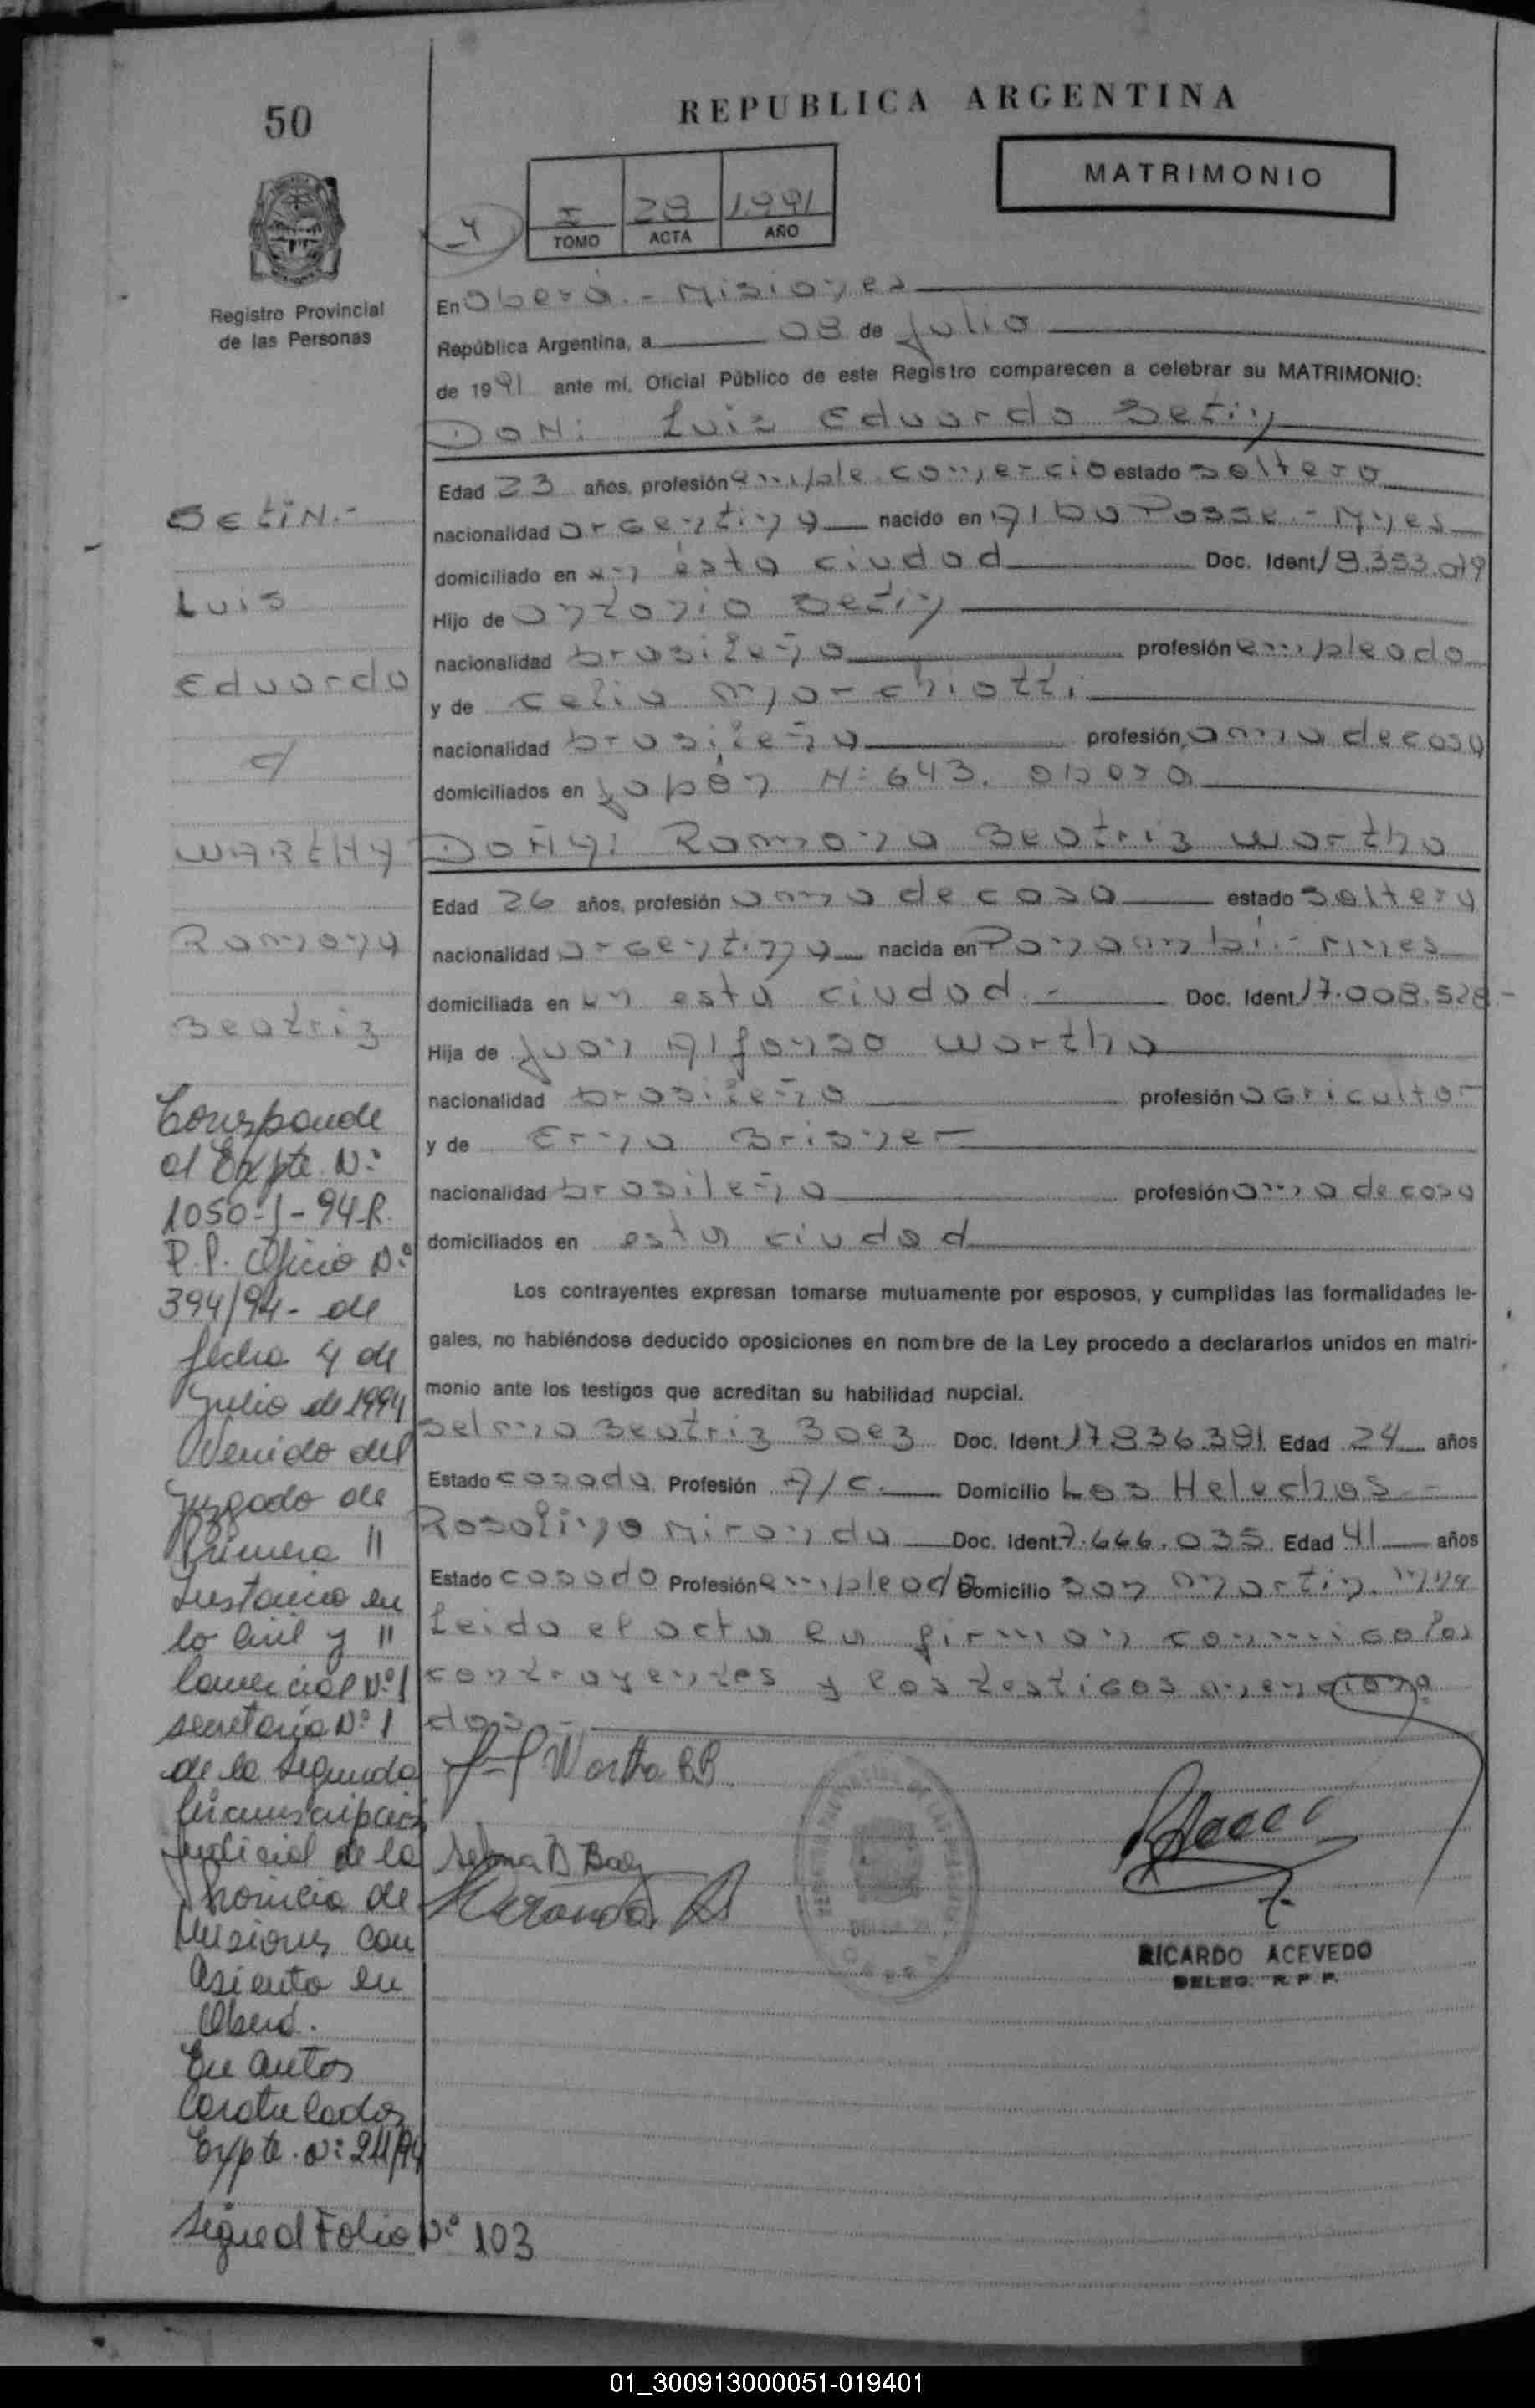 50
REPUBLICA ARGENTINA
MATRIMONIO
I 28 1991
TOMO ACTA AÑO
Registro Provincial
de las Personas
En Oberá.- Misiones
República Argentina, a 08 de Julio
de 1991 ante mí, Oficial Público de este Registro comparecen a celebrar su MATRIMONIO:
DON: Luis Eduardo Setin
Edad 23 años, profesión emple. comercio estado soltero
nacionalidad argentina nacido en Alba Posse.- Mnes
domiciliado en en ésta ciudad Doc. Ident 18.353.079
Hijo de Antonio Setin
nacionalidad brasileña profesión empleado
y de Celia Marchiotti
nacionalidad brasileña profesión ama de casa
domiciliados en Japón N: 643. Oberá
DOÑA: Ramona Beatriz Wartha
Edad 26 años, profesión ama de casa estado soltera
nacionalidad argentina nacida en Panambí.- Mnes
domiciliada en en esta ciudad.- Doc. Ident. 17.008.528.-
Hija de Juan Alfonso Wartha
nacionalidad brasileña profesión agricultor
y de Erna Brisner
nacionalidad brasileña profesión ama de casa
domiciliados en esta ciudad
Los contrayentes expresan tomarse mutuamente por esposos, y cumplidas las formalidades le-
gales, no habiéndose deducido oposiciones en nombre de la Ley procedo a declararlos unidos en matri-
monio ante los testigos que acreditan su habilidad nupcial.
Selma Beatriz Baez Doc. Ident. 17.836.391 Edad 24 años
Estado casada Profesión A/C. Domicilio Los Helechos.-
Rosalino Miranda Doc. Ident. 7.666.035. Edad 41 años
Estado casado Profesión empleado Domicilio San Martín.
Leida el acta la firman conmigo los
contrayentes y los testigos menciona
dos.-
Wartha R.B.
Selma B Baez
Miranda R
RICARDO ACEVEDO
DELEG. R. P. P.
SETIN.-
Luis
Eduardo
c/
WARTHA
Ramona
Beatriz
Corresponde
al Expte. N:
1050-J-94-R.
P.P. Oficio N:º
394/94- de
fecha 4 de
Julio de 1994
Venido del
Juzgado de
Primera "
Instancia en
lo Civil y "
Comercial Nº 1
secretaria Nº 1
de la segunda
Circunscripción
judicial de la
Provincia de
Misiones con
Asiento en
Oberá.
En autos
Caratulados
Expte. N: 211/94
Sigue al Folio Nº 103
01_300913000051-019401